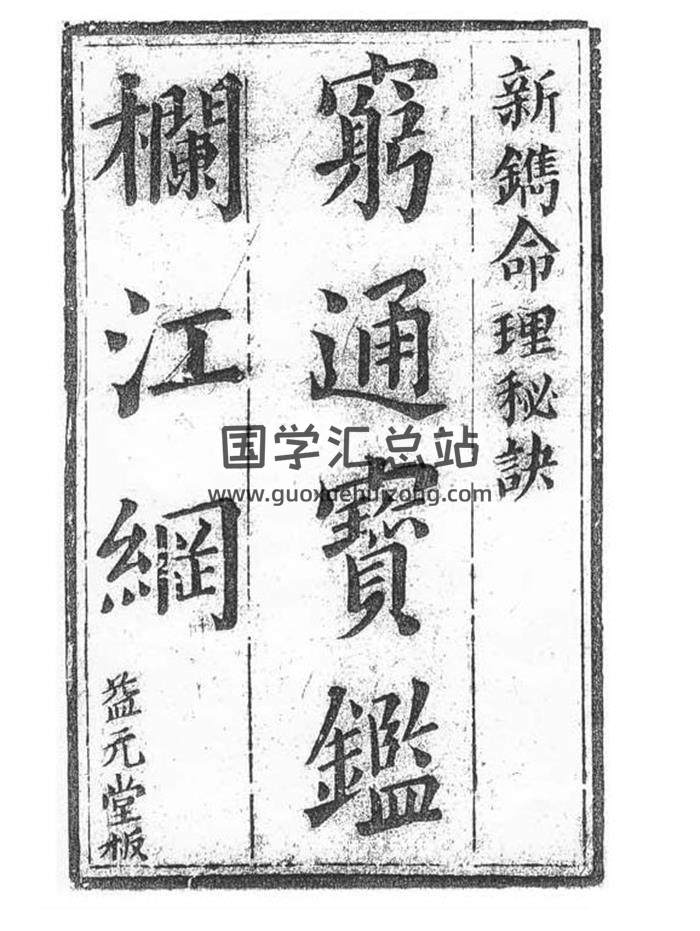 新鐫命理秘訣
窮通寶鑑
欄江網
益元堂板
国学汇总站
www.guoxuehuizong.com